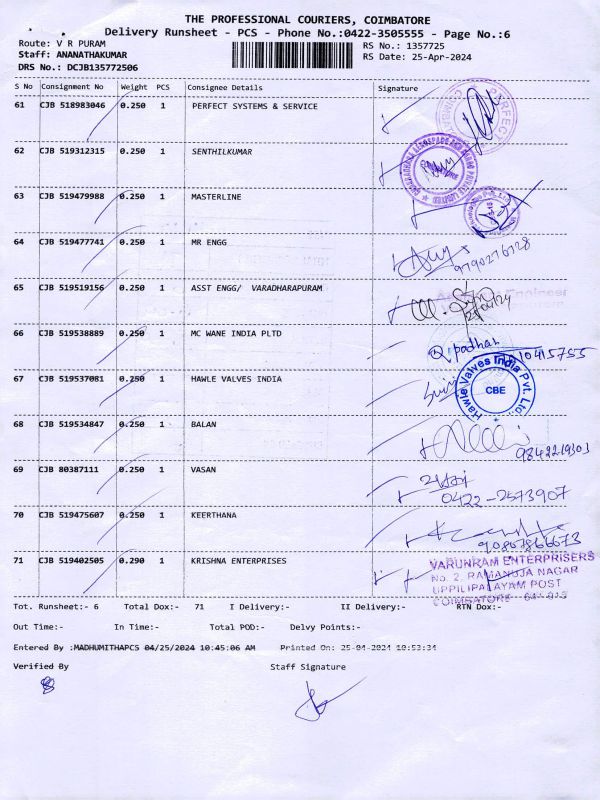 THE PROFESSIONAL COURIERS, COIMBATORE
Delivery Runsheet - PCS - Phone No.:0422-3505555 - Page No.:6
Route: V R PURAM
RS No.: 1357725
Staff: ANANATHAKUMAR
RS Date: 25-Apr-2024
DRS No.: DCJB135772506
S No Consignment No Weight PCS Consignee Details Signature
61 CJB 518983046 0.250 1 PERFECT SYSTEMS & SERVICE
62 CJB 519312315 0.250 1 SENTHILKUMAR
63 CJB 519479988 0.250 1 MASTERLINE
64 CJB 519477741 0.250 1 MR ENGG
9790276728
65 CJB 519519156 0.250 1 ASST ENGG/ VARADHARAPURAM
Engineer
66 CJB 519538889 0.250 1 MC WANE INDIA PLTD
67 CJB 519537081 0.250 1 HAWLE VALVES INDIA
Hawle Valves India Pvt. Ltd.,
CBE
68 CJB 519534847 0.250 1 BALAN
69 CJB 80387111 0.250 1 VASAN
0422-2573907
70 CJB 519475607 0.250 1 KEERTHANA
71 CJB 519402505 0.290 1 KRISHNA ENTERPRISES
VARUNRAM ENTERPRISERS
No. 2, RAMANUJA NAGAR
UPPILIPALAYAM POST
COIMBATORE
Tot. Runsheet:- 6 Total Dox:- 71 I Delivery:- II Delivery:- RTN Dox:-
Out Time:- In Time:- Total POD:- Delvy Points:-
Entered By :MADHUMITHAPCS 04/25/2024 10:45:06 AM Printed On: 25-04-2024 10:53:34
Verified By Staff Signature